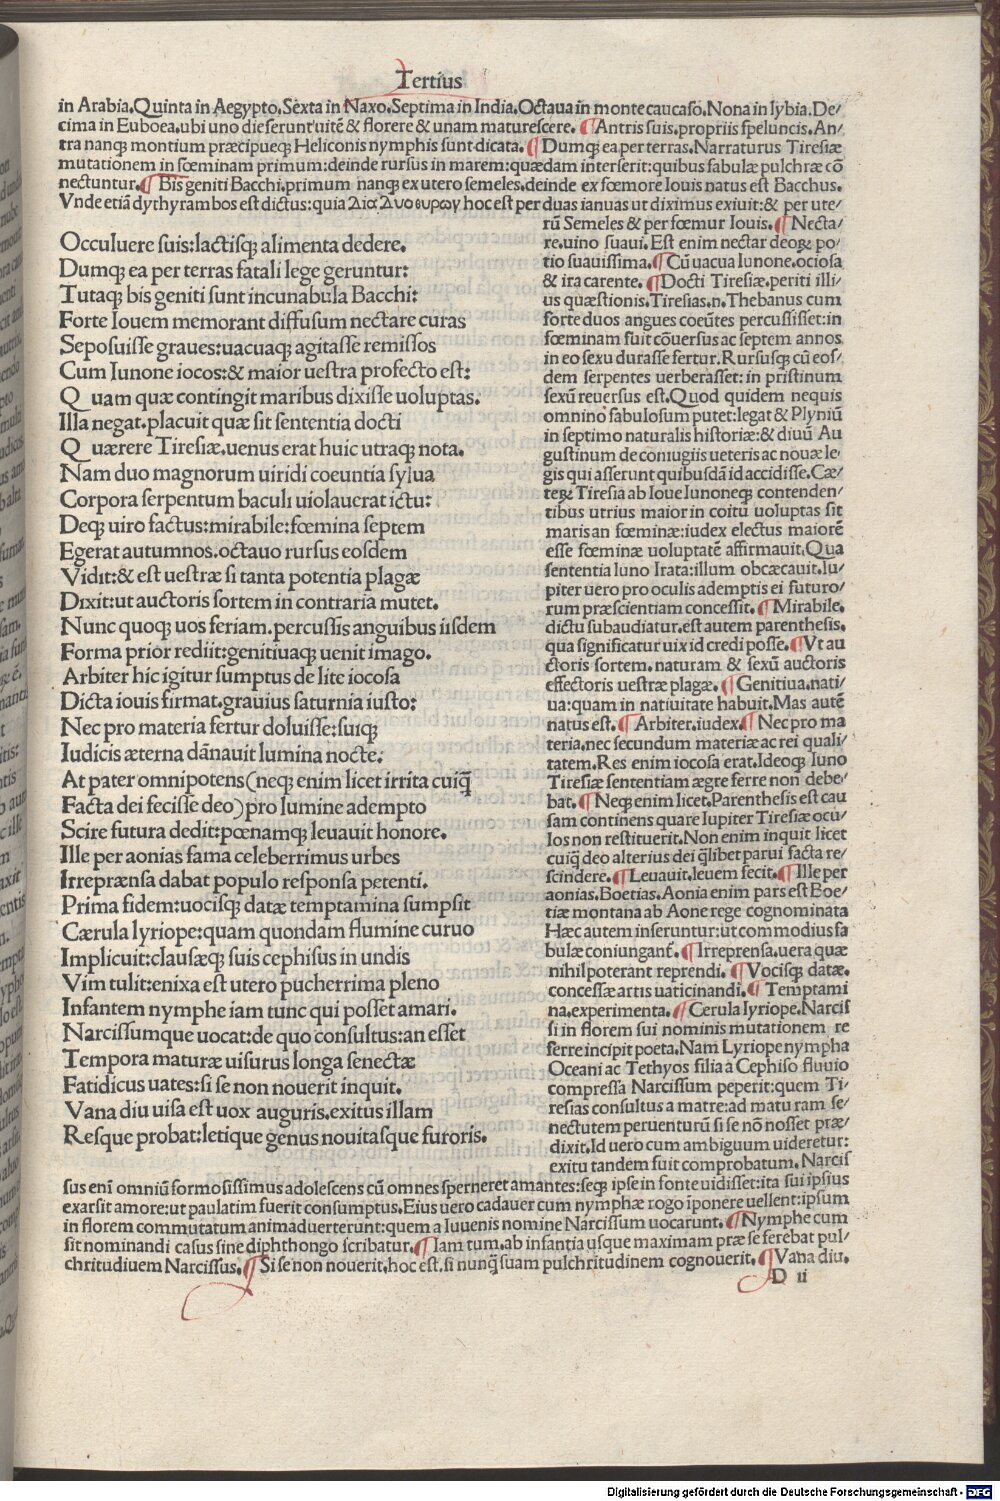 Tertius
in Arabia.Quinta in Aegypto.Sexta in Naxo.Septima in India.Octaua in monte caucaso.Nona in lybia.De/
cima in Euboea.ubi uno die serunt uitē & florere & unam maturescere. ¶Antris suis.propriis speluncis.An/
tra nanqꝫ montium præcipueqꝫ Heliconis nymphis sunt dicata. ¶Dumqꝫ ea.per terras.Narraturus Tiresiæ
mutationem in fœminam primum:deinde rursus in marem:quædam interserit:quibus fabulæ pulchræ cō
nectuntur.¶ Bis geniti Bacchi.primum nanqꝫ ex utero semeles.deinde ex fœmore Iouis natus est Bacchus.
Vnde etiā dythyrambos est dictus:quia hoc est per duas ianuas ut diximus exiuit:& per ute/
Occuluere suis:lactisqꝫ alimenta dedere.
Dumqꝫ ea per terras fatali lege geruntur:
Tutaqꝫ bis geniti sunt incunabula Bacchi:
Forte Iouem memorant diffusum nectare curas
Seposuisse graues:uacuaqꝫ agitasse remissos
Cum Iunone iocos:& maior uestra profecto est:
Q uam quæ contingit maribus dixisse uoluptas.
Illa negat.placuit quæ sit sententia docti
Q uærere Tiresiæ.uenus erat huic utraqꝫ nota.
Nam duo magnorum uiridi coeuntia sylua
Corpora serpentum baculi uiolauerat ictu:
Deqꝫ uiro factus:mirabile:fœmina septem
Egerat autumnos.octauo rursus eosdem
Vidit:& est uestræ si tanta potentia plagæ
Dixit:ut auctoris sortem in contraria mutet.
Nunc quoqꝫ uos feriam.percussis anguibus iisdem
Forma prior rediit:genitiuaqꝫ uenit imago.
Arbiter hic igitur sumptus de lite iocosa
Dicta iouis firmat.grauius saturnia iusto:
Nec pro materia fertur doluisse:suiqꝫ
Iudicis æterna dānauit lumina nocte.
At pater omnipotens(neqꝫ enim licet irrita cuiq̄
Facta dei fecisse deo)pro lumine adempto
Scire futura dedit:pœnamqꝫ leuauit honore.
Ille per aonias fama celeberrimus urbes
Irrepræensa dabat populo responsa petenti.
Prima fidem:uocisqꝫ datæ temptamina sumpsit
Cærula lyriope:quam quondam flumine curuo
Implicuit:clausæqꝫ suis cephisus in undis
Vim tulit:enixa est utero pucherrima pleno
Infantem nymphe iam tunc qui posset amari.
Narcissumque uocat:de quo consultus:an esset
Tempora maturæ uisurus longa senectæ
Fatidicus uates:si se non nouerit inquit.
Vana diu uisa est uox auguris.exitus illam
Resque probat:letique genus nouitasque furoris.
rū Semeles & per fœmur Iouis. ¶Necta/
re.uino suaui.Est enim nectar deoꝝ po/
tio suauissima.¶Cū uacua Iunone.ociosa
& ira carente. ¶Docti Tiresiæ.periti illi/
us quæstionis.Tiresias.n.Thebanus cum
forte duos angues coeūtes percussisset:in
fœminam fuit cōuersus ac septem annos
in eo sexu durasse fertur.Rursusqꝫ cū eos/
dem serpentes uerberasset: in pristinum
sexū reuersus est.Quod quidem nequis
omnino fabulosum putet:legat & Plyniū
in septimo naturalis historiæ:& diuū Au
gustinum de coniugiis ueteris ac nouæ le
gis qui asserunt quibusdā id accidisse.Cæ/
teꝝ Tiresia ab Ioue Iunoneqꝫ contenden/
tibus utrius maior in coitu uoluptas sit
maris an fœminæ:iudex electus maiorē
esse fœminæ uoluptatē affirmauit.Qua
sententia Iuno Irata:illum obcæcauit.Iu/
piter uero pro oculis ademptis ei futuro/
rum præscientiam concessit. ¶Mirabile.
dictu subaudiatur.est autem parenthesis.
qua significatur uix id credi posse.¶Vt au
ctoris sortem.naturam & sexū auctoris
effectoris uestræ plagæ. ¶Genitiua.nati/
ua:quam in natiuitate habuit.Mas autē
natus est. ¶Arbiter.iudex.¶Nec pro ma
teria.nec secundum materiæ ac rei quali/
tatem.Res enim iocosa erat.Ideoqꝫ Iuno
Tiresiæ sententiam ægre ferre non debe/
bat. ¶Neqꝫ enim licet.Parenthesis est cau
sam continens quare Iupiter Tiresiæ ocu/
los non restituerit.Non enim inquit licet
cuiqꝫ deo alterius dei q̄libet parui facta re/
scindere. ¶Leuauit.leuem fecit.¶Ille per
aonias.Boetias.Aonia enim pars est Boe/
tiæ montana ab Aone rege cognominata
Hæc autem inseruntur:ut commodius fa
bulæ coniungant̄. ¶Irreprensa.uera quæ
nihil poterant reprendi. ¶Vocisqꝫ datæ.
concessæ artis uaticinandi.¶ Temptami
na.experimenta. ¶Cerula lyriope.Narcis
si in florem sui nominis mutationem re
ferre incipit poeta.Nam Lyriope nympha
Oceani ac Tethyos filia a Cephiso fluuio
compressa Narcissum peperit:quem Ti/
resias consultus a matre:ad maturam se/
nectutem peruenturū si se nō nosset præ/
dixit.Id uero cum ambiguum uideretur:
exitu tandem fuit comprobatum.Narcis
sus eni̅ omniū formosissimus adolescens cū omnes sperneret amantes:seqꝫ ipse in fonte uidisset:ita sui ipsius
exarsit amore:ut paulatim fuerit consumptus.Eius uero cadauer cum nymphæ rogo īponere uellent:ipsum
in florem commutatum animaduerterunt:quem a Iuuenis nomine Narcissum uocarunt. ¶Nymphe cum
sit nominandi casus sine diphthongo scribatur.¶ Iam tum.ab infantia usque maximam præ se ferebat pul/
chritudiuem Narcissus.¶ Si se non nouerit.hoc est.si nunq̄ suam pulchritudinem cognouerit.¶Vana diu.
D ii
Digitalisierung gefördert durch die Deutsche Forschungsgemeinschaft - DFG